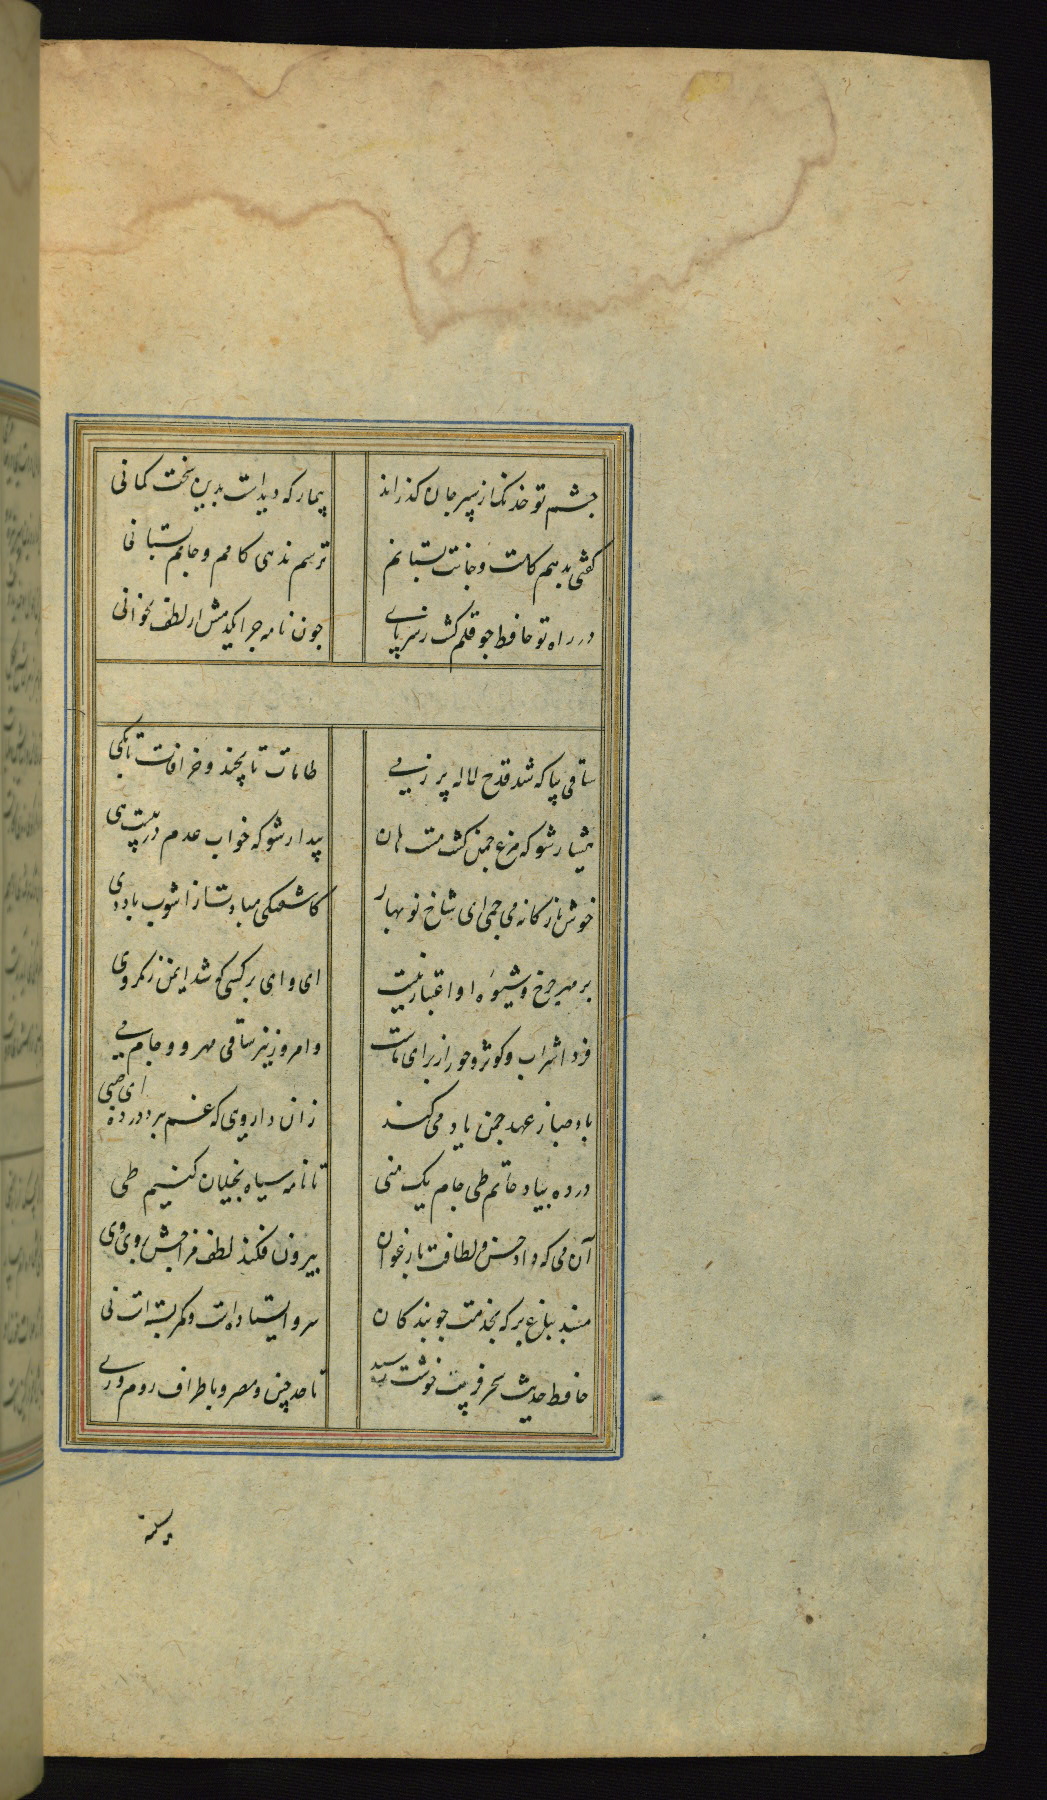 چشم تو خدنک از سپر جان کذراند بیمار که دیدست بدین سخت کمانی
کفتی بدهم کامت و جانت بستانم ترسم ندهی کامم و جانم بستانی
در راه تو حافظ چو قلم کشت ز سر پای چون نامه چرا یکدمش از لطف نخوانی
ساقی بیا که شد قدح لاله پر ز می طامات تا بچند و خرافات تا بکی
هشیار شو که مرغ چمن کشت مست هان بیدار شو که خواب عدم در پیست هی
خوش نازکانه می چمی ای شاخ نوبهار کاشفتکی مبادت از آشوب باد دی
بر مهر چرخ و شیوه او اعتبار نیست ای وای بر کسی که شد ایمن ز مکر وی
فردا شراب و کوثر و حور از برای ماست و امروز نیز ساقی مهرو و جام می
باد صبا ز عهد چمن یاد می کند زان داروی که غم ببرد در ده ای صبی
در ده بیاد حاتم طی جام یک منی تا نامه سیاه بخیلان کنیم طی
آن می که داد حسن و لطافت بارغوان بیرون فکند لطف مزاجش بوی وی
مسند بباغ بر که بخدمت چو بندکان سرو ایستاده است و کمر بسته است نی
حافظ حدیث سحر فریب خوشت رسید تا حد چین و مصر و باطراف روم و ری